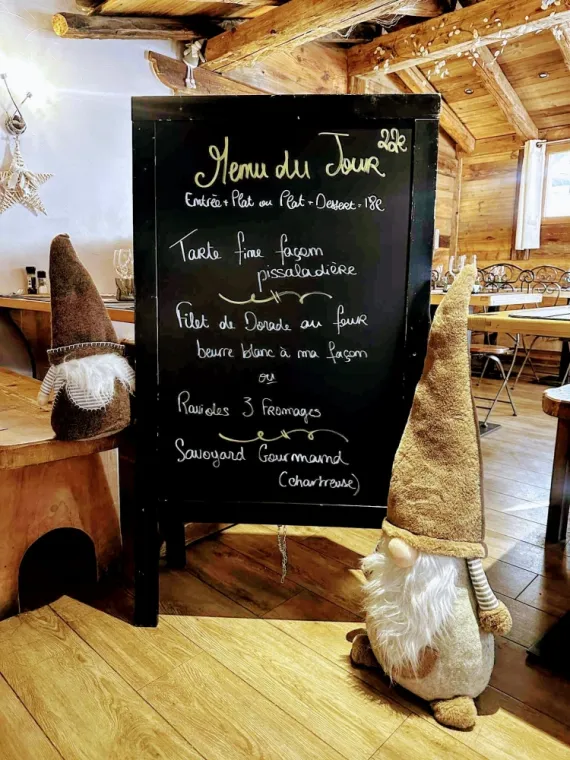 Menu du Jour 22€
Entrée + Plat ou Plat + Dessert = 18€
Tarte fine façon
pissaladière
Filet de Dorade au four
beurre blanc à ma façon
ou
Ravioles 3 Fromages
Savoyard Gourmand
(chartreuse)